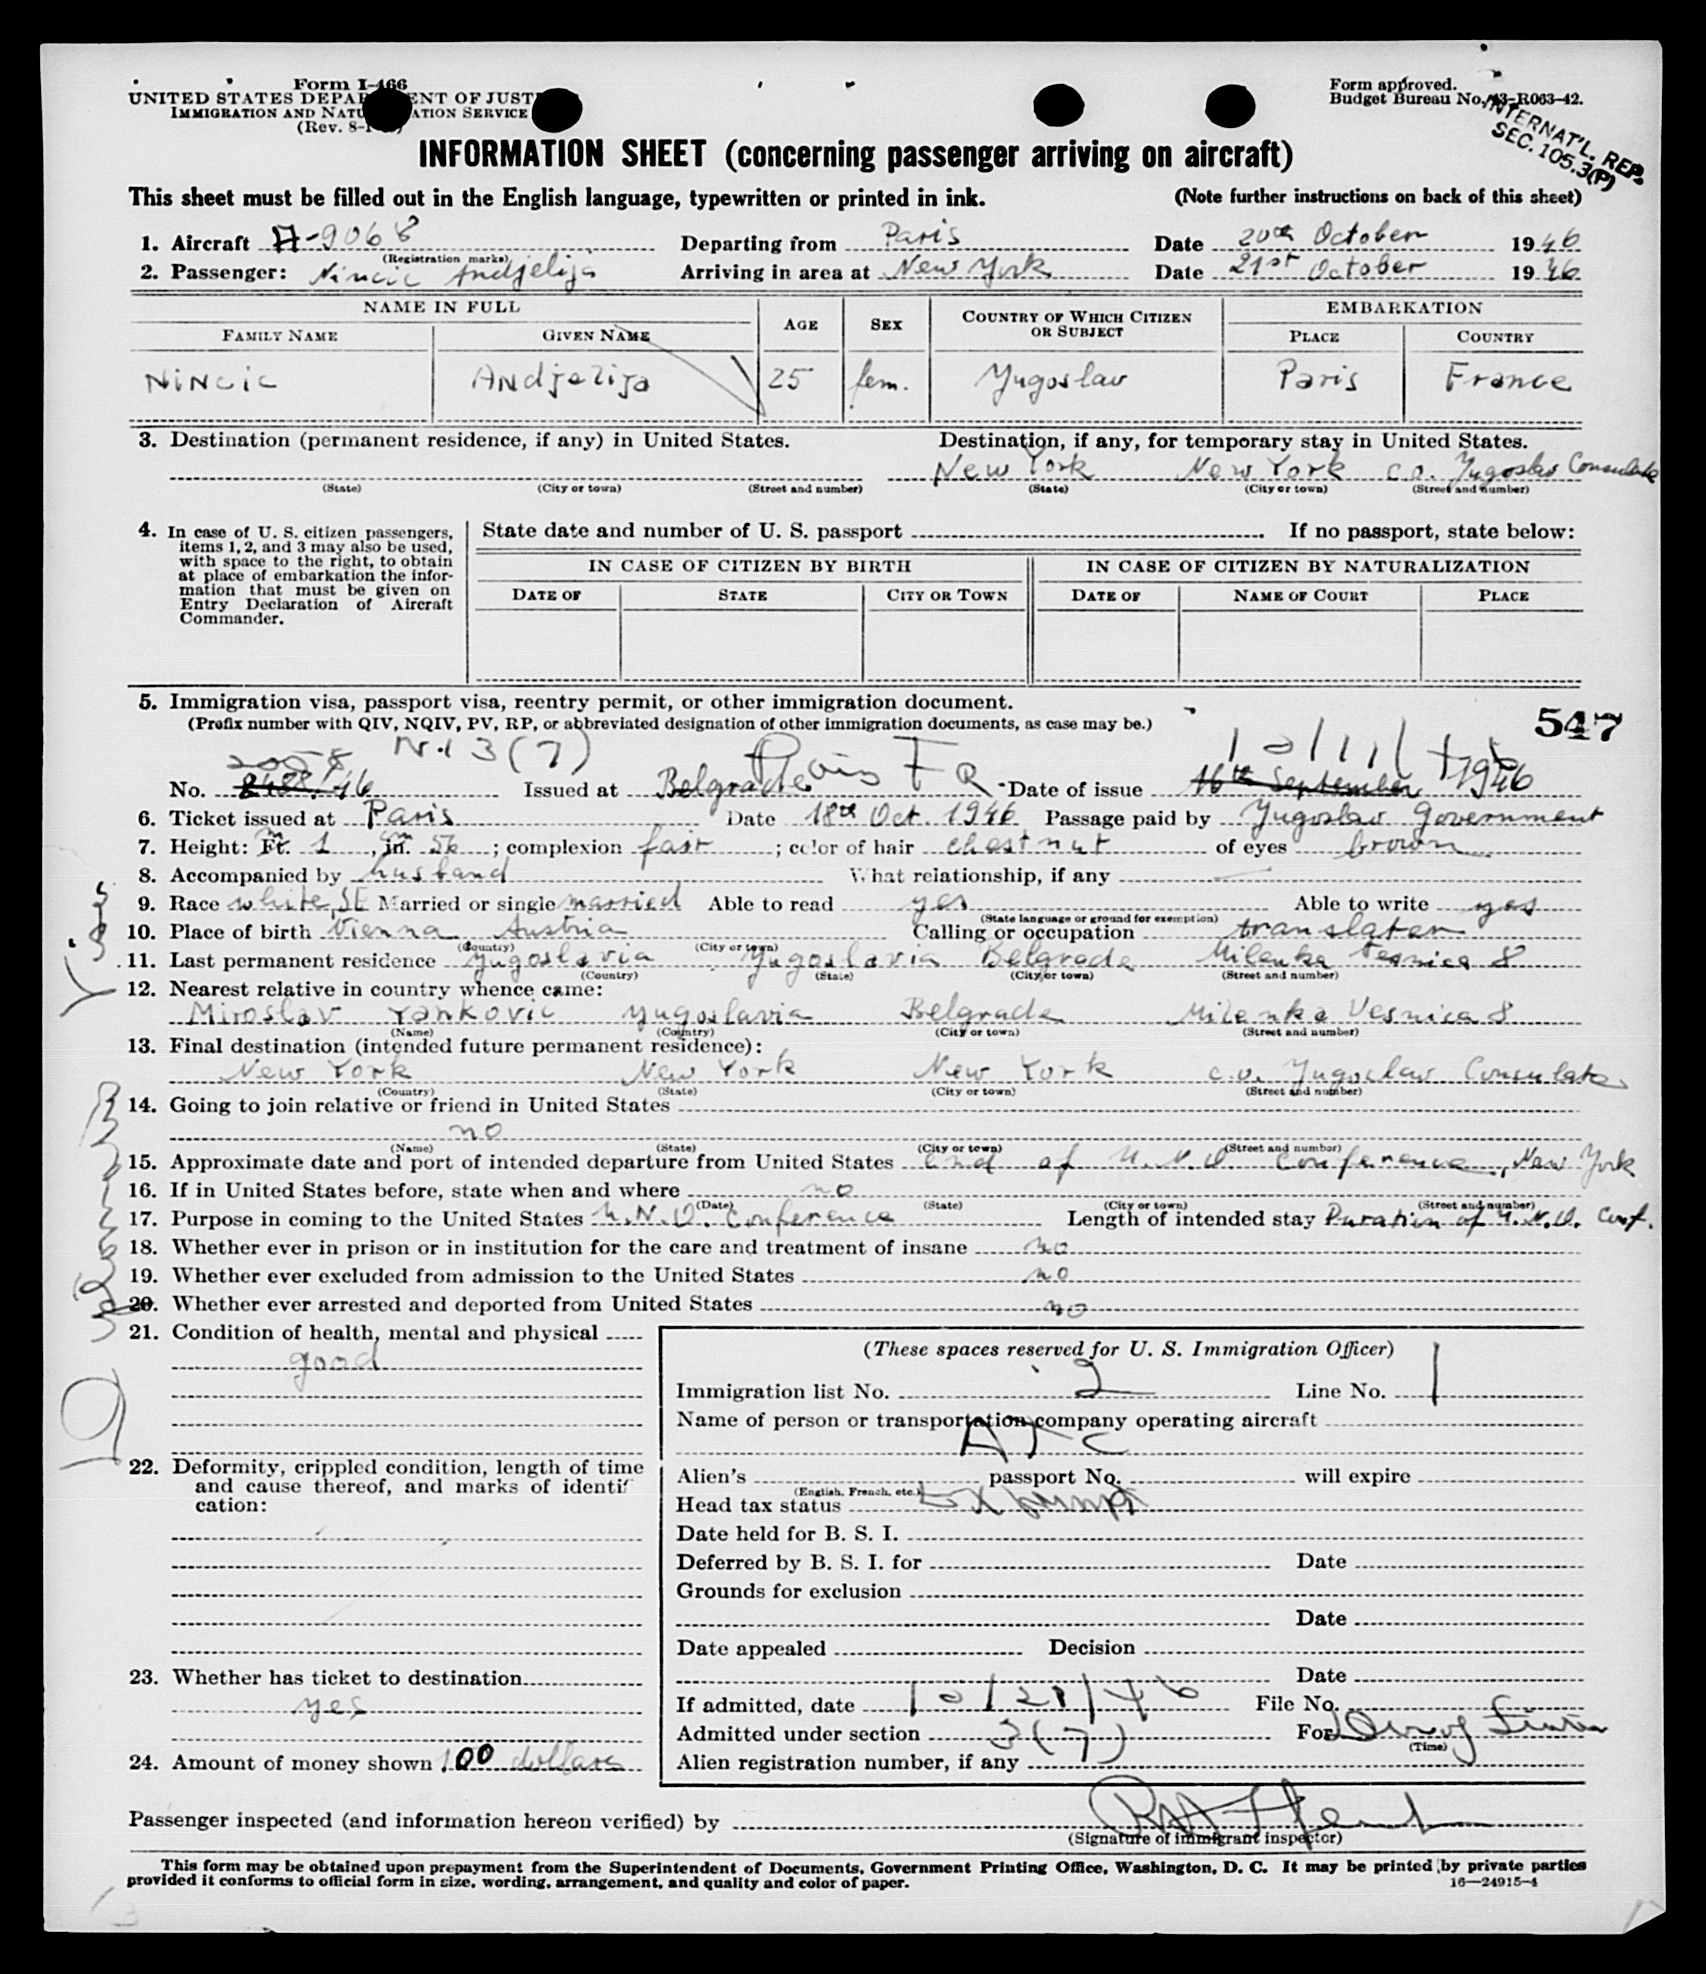 Form I-466
UNITED STATES DEPARTMENT OF JUSTICE
IMMIGRATION AND NATURALIZATION SERVICE
(Rev. 8-1-
Form approved.
Budget Bureau No. 43-R063-42.
INTERNAT'L. REP.
SEC. 105.3(P)
INFORMATION SHEET (concerning passenger arriving on aircraft)
This sheet must be filled out in the English language, typewritten or printed in ink. (Note further instructions on back of this sheet)
1. Aircraft A-9068 Departing from Paris Date 20th October 1946
(Registration marks)
2. Passenger: Nincic Andjelija Arriving in area at New York Date 21st October 1946
NAME IN FULL AGE SEX COUNTRY OF WHICH CITIZEN OR SUBJECT EMBARKATION
FAMILY NAME GIVEN NAME PLACE COUNTRY
NiNcic ANdjelija 25 fem. Yugoslav Paris France
3. Destination (permanent residence, if any) in United States. Destination, if any, for temporary stay in United States.
New York New York c.o. Yugoslav Consulate
(State) (City or town) (Street and number) (State) (City or town) (Street and number)
4. In case of U. S. citizen passengers,
items 1, 2, and 3 may also be used,
with space to the right, to obtain
at place of embarkation the infor-
mation that must be given on
Entry Declaration of Aircraft
Commander.
State date and number of U. S. passport . If no passport, state below:
IN CASE OF CITIZEN BY BIRTH IN CASE OF CITIZEN BY NATURALIZATION
DATE OF STATE CITY OR TOWN DATE OF NAME OF COURT PLACE
5. Immigration visa, passport visa, reentry permit, or other immigration document.
(Prefix number with QIV, NQIV, PV, RP, or abbreviated designation of other immigration documents, as case may be.)
547
3(7) Paris FR
No. 46 Issued at Belgrade Date of issue 16th September 1946
6. Ticket issued at Paris Date 18th Oct. 1946 Passage paid by Yugoslav Government
7. Height: Ft. m 1, in. cm 56; complexion fair; color of hair chestnut of eyes brown
8. Accompanied by husband What relationship, if any
9. Race white, SE Married or single married Able to read yes Able to write yes
(State language or ground for exemption)
10. Place of birth Vienna Austria Calling or occupation translater
(Country) (City or town)
11. Last permanent residence Yugoslavia Yugoslavia Belgrade Milenka 8
(Country) (State) (City or town) (Street and number)
12. Nearest relative in country whence came:
Miroslav Yankovic Yugoslavia Belgrade Milenka Vesnica 8
(Name) (Country) (City or town) (Street and number)
13. Final destination (intended future permanent residence):
New York New York New York c.o. Yugoslav Consulate
(Country) (State) (City or town) (Street and number)
14. Going to join relative or friend in United States
no
(Name) (State) (City or town) (Street and number)
15. Approximate date and port of intended departure from United States End of U.N.O Conference, New York
16. If in United States before, state when and where no
(Date) (State) (City or town) (Street and number)
17. Purpose in coming to the United States U.N.O. Conference Length of intended stay Duration of U.N.O. Conf.
18. Whether ever in prison or in institution for the care and treatment of insane no
19. Whether ever excluded from admission to the United States no
20. Whether ever arrested and deported from United States no
21. Condition of health, mental and physical
good
22. Deformity, crippled condition, length of time
and cause thereof, and marks of identifi
cation:
23. Whether has ticket to destination
yes
24. Amount of money shown 100 dollars
(These spaces reserved for U. S. Immigration Officer)
Immigration list No. 2 Line No. 1
Name of person or transportation company operating aircraft
ATC
Alien's passport No. will expire
(English, French, etc.)
Head tax status Exempt
Date held for B. S. I.
Deferred by B. S. I. for Date
Grounds for exclusion
Date
Date appealed Decision
Date
If admitted, date 10/21/46 File No.
Admitted under section 3(7) For
(Time)
Alien registration number, if any
Passenger inspected (and information hereon verified) by
(Signature of immigrant inspector)
This form may be obtained upon prepayment from the Superintendent of Documents, Government Printing Office, Washington, D. C. It may be printed by private parties
provided it conforms to official form in size, wording, arrangement, and quality and color of paper. 16—24915-4